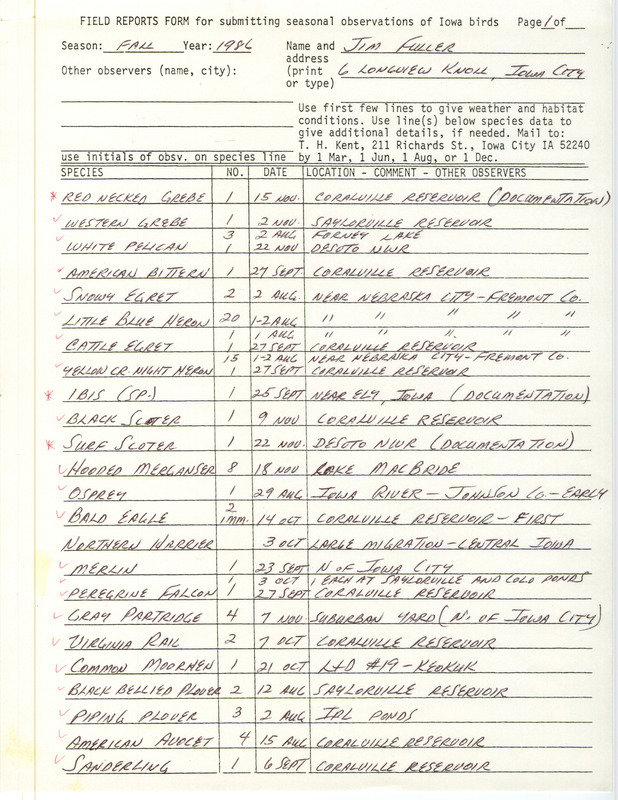 FIELD REPORTS FORM for submitting seasonal observations of Iowa birds Page 1 of
Season: FALL Year: 1986 Name and JIM FULLER
address
Other observers (name, city): (print 6 LONGVIEW KNOLL, IOWA CITY
or type)
Use first few lines to give weather and habitat
conditions. Use line(s) below species data to
give additional details, if needed. Mail to:
T. H. Kent, 211 Richards St., Iowa City IA 52240
use initials of obsv. on species line by 1 Mar, 1 Jun, 1 Aug, or 1 Dec.
SPECIES NO. DATE LOCATION - COMMENT - OTHER OBSERVERS
* RED NECKED GREBE 1 15 NOV. CORALVILLE RESERVOIR (DOCUMENTATION)
✓ WESTERN GREBE 1 2 NOV. SAYLORVILLE RESERVOIR
3 2 AUG FORNEY LAKE
✓ WHITE PELICAN 1 22 NOV DESOTO NWR
✓ AMERICAN BITTERN 1 27 SEPT CORALVILLE RESERVOIR
✓ SNOWY EGRET 2 2 AUG NEAR NEBRASKA CITY - FREMONT CO.
✓ LITTLE BLUE HERON 20 1-2 AUG " " " " "
1 1 AUG " " " " "
✓ CATTLE EGRET 1 27 SEPT CORALVILLE RESERVOIR
15 1-2 AUG NEAR NEBRASKA CITY - FREMONT CO.
✓ YELLOW CR. NIGHT HERON 1 27 SEPT CORALVILLE RESERVOIR
* IBIS (SP.) 1 25 SEPT NEAR ELY, IOWA (DOCUMENTATION)
✓ BLACK SCOTER 1 9 NOV CORALVILLE RESERVOIR
* SURF SCOTER 1 22 NOV. DESOTO NWR (DOCUMENTATION)
✓ HOODED MERGANSER 8 18 NOV LAKE MACBRIDE
✓ OSPREY 1 29 AUG IOWA RIVER - JOHNSON CO - EARLY
2
✓ BALD EAGLE 1 IMM. 14 OCT CORALVILLE RESERVOIR - FIRST
NORTHERN HARRIER 3 OCT LARGE MIGRATION - CENTRAL IOWA
✓ MERLIN 1 23 SEPT N OF IOWA CITY
1 3 OCT 1 EACH AT SAYLORVILLE AND COLO PONDS
✓ PEREGRINE FALCON 1 27 SEPT CORALVILLE RESERVOIR
✓ GRAY PARTRIDGE 4 7 NOV SUBURBAN YARD (N. OF IOWA CITY)
✓ VIRGINIA RAIL 2 7 OCT CORALVILLE RESERVOIR
✓ COMMON MOORHEN 1 21 OCT L+D #19 - KEOKUK
✓ BLACK BELLIED PLOVER 2 12 AUG SAYLORVILLE RESERVOIR
✓ PIPING PLOVER 3 2 AUG IPL PONDS
✓ AMERICAN AVOCET 4 15 AUG CORALVILLE RESERVOIR
✓ SANDERLING 1 6 SEPT CORALVILLE RESERVOIR